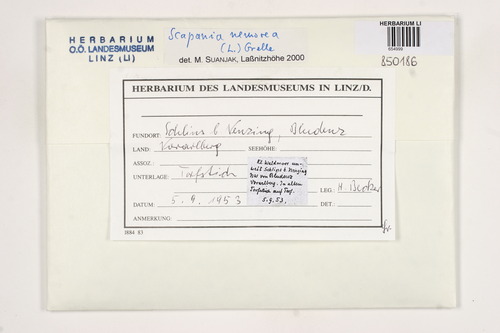 HERBARIUM
O.Ö. LANDESMUSEUM
LINZ (LI)
Scapania nemorea
(L.) Grolle
det. M. SUANJAK, Laßnitzhöhe 2000
HERBARIUM LI
850186
HERBARIUM DES LANDESMUSEUMS IN LINZ/D.
FUNDORT: Schlins b Nenzing, Bludenz
LAND: Vorarlberg SEEHÖHE:
ASSOZ.:
UNTERLAGE: Torfstich
Waldmoor un-
weit Schlins b. Nenzing
NW von Bludenz
Vorarlberg. In altem
Torfstich auf Torf.
5.9.53.
LEG: H. Becker
DATUM: 5. 9. 1953 DET:
ANMERKUNG:
J884 83